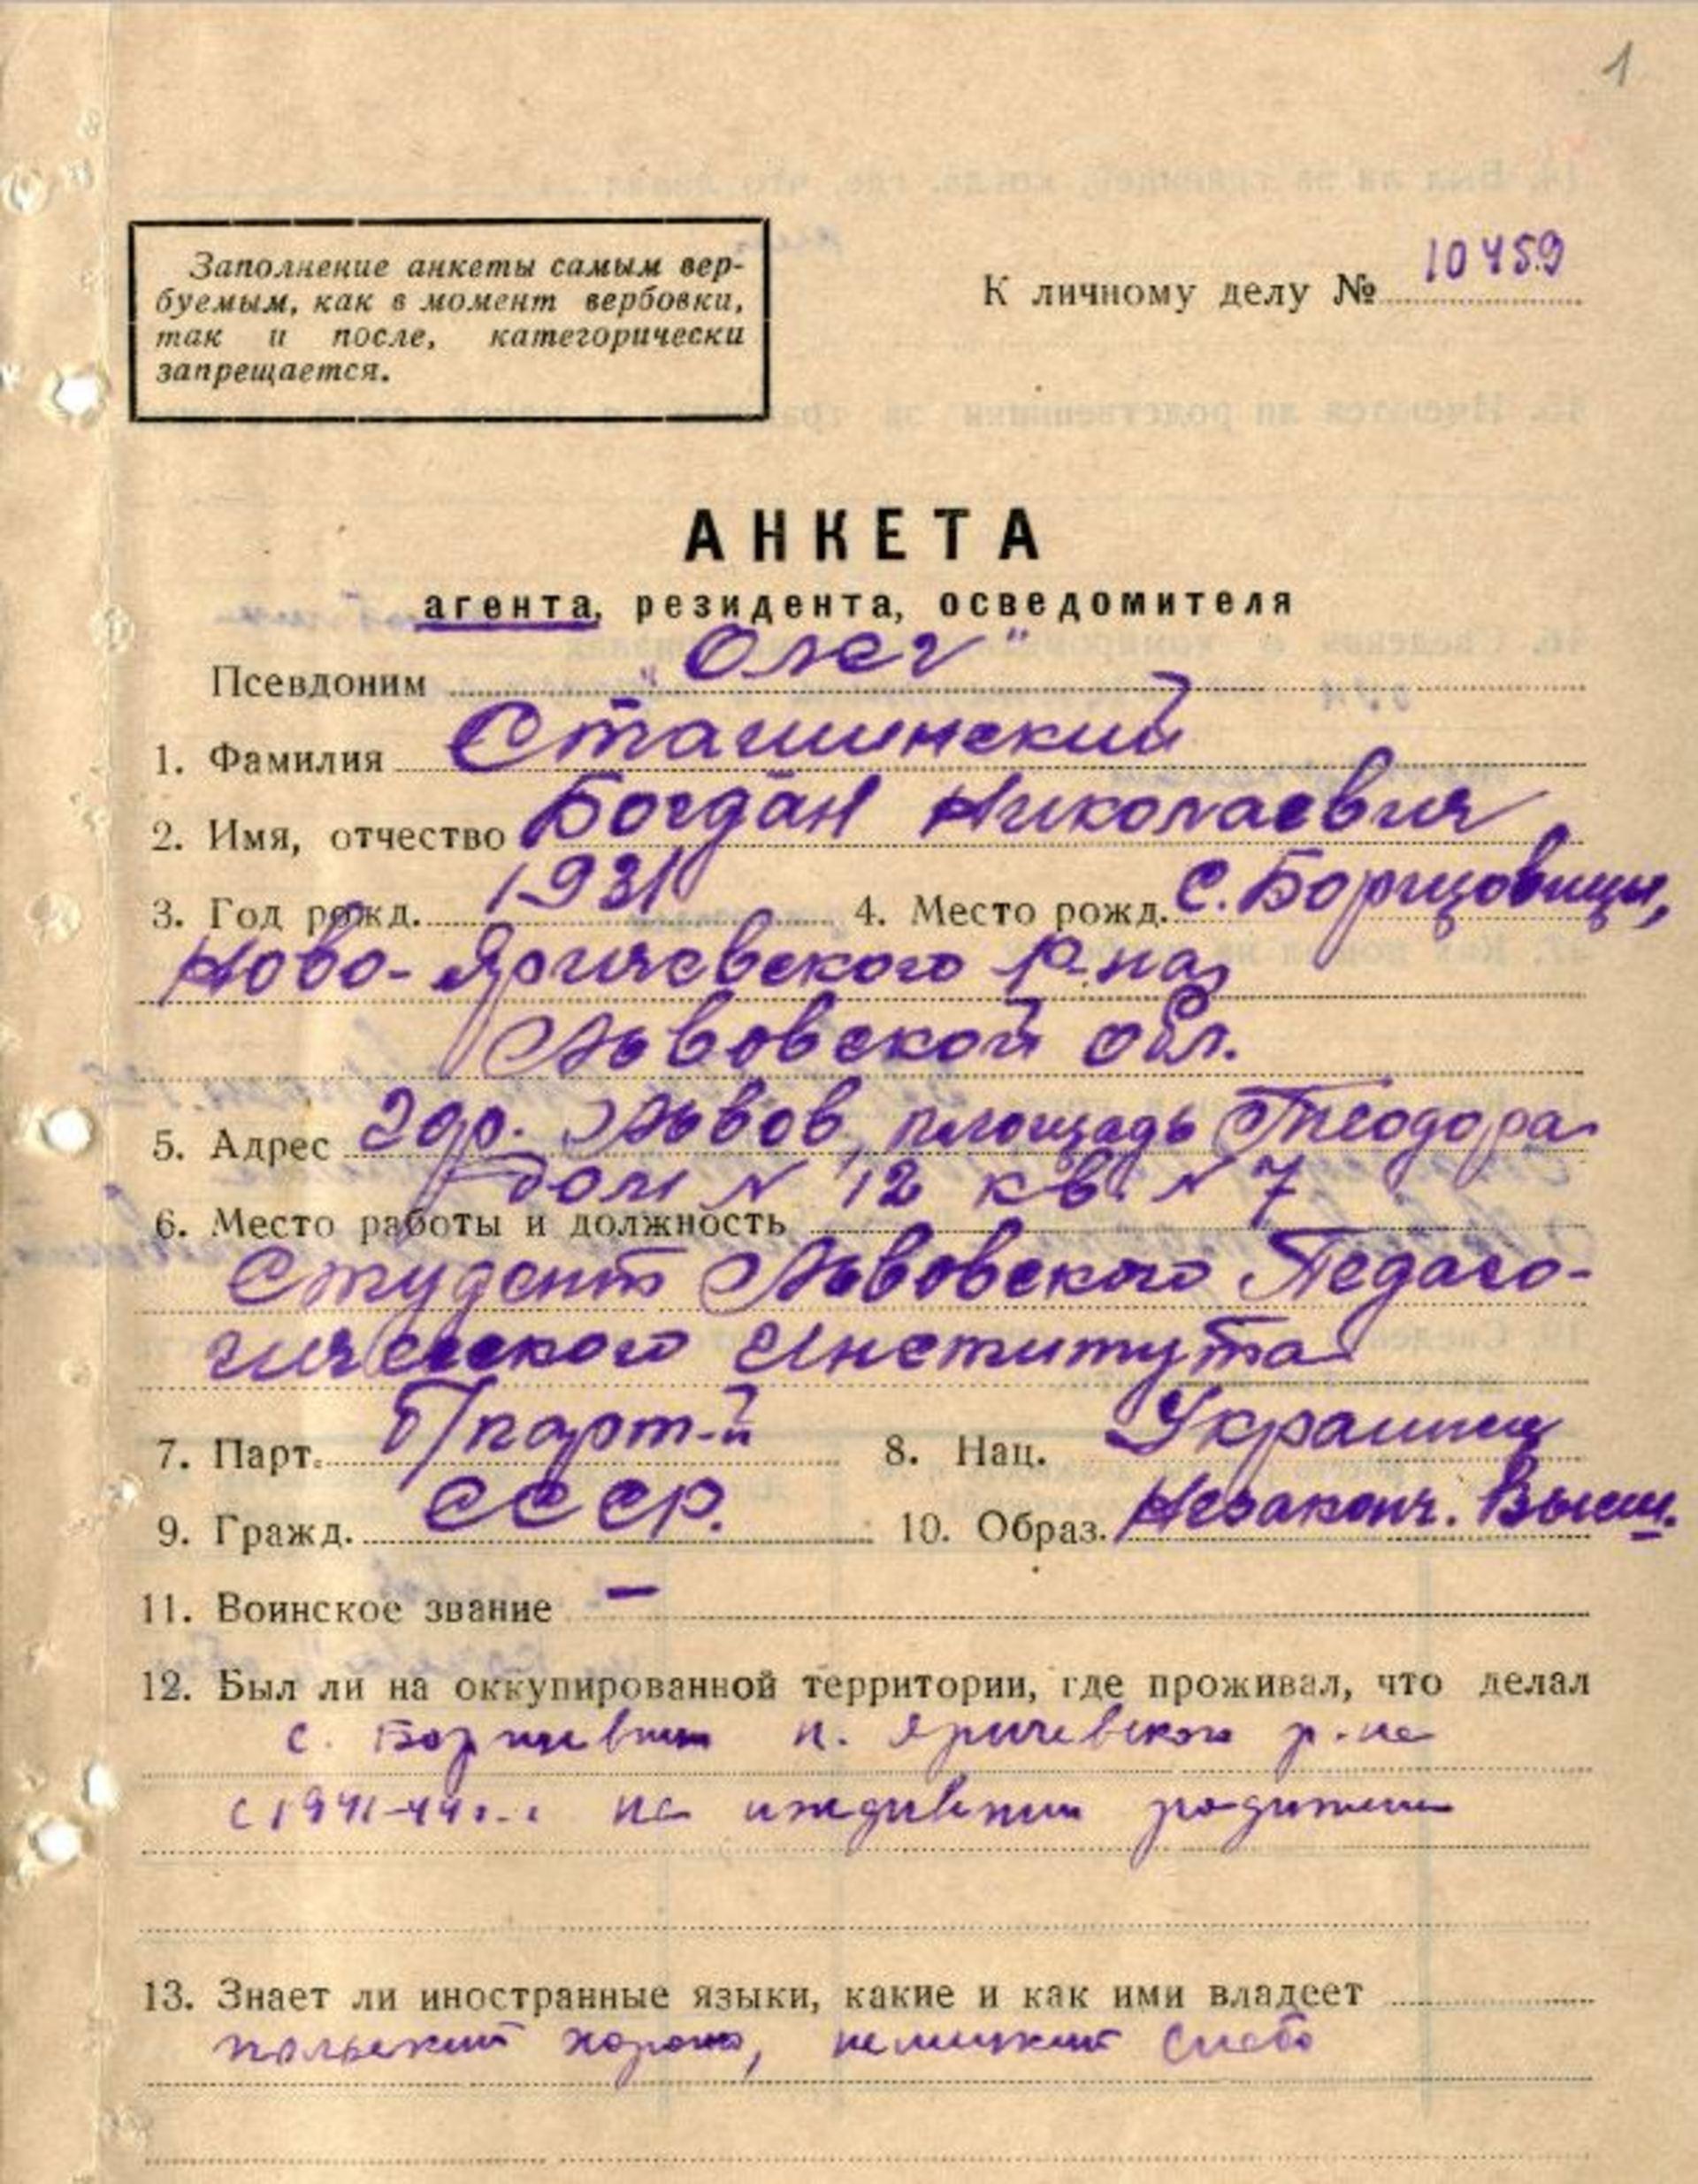 1
Заполнение анкеты самым вер-
буемым, как в момент вербовки,
так и после, категорически
запрещается.
К личному делу № 10459
АНКЕТА
агента, резидента, осведомителя
Псевдоним "Олег"
1. Фамилия Сташинский
2. Имя, отчество Богдан Николаевич
3. Год рожд. 1931 4. Место рожд. С. Борщовицы,
Ново-Яричевского р-на,
Львовской обл.
5. Адрес гор. Львов, площадь Теодора
дом N 12 кв. N 7
6. Место работы и должность
Студент Львовского Педаго-
гического Института
7. Парт. б/парт-й 8. Нац. Украинец
9. Гражд. СССР. 10. Образ. Незаконч. Высш.
11. Воинское звание —
12. Был ли на оккупированной территории, где проживал, что делал
с. Н. Яричевского р-на
с 1941-44 г. на иждивении родителей
13. Знает ли иностранные языки, какие и как ими владеет
польский хорошо, немецкий слабо